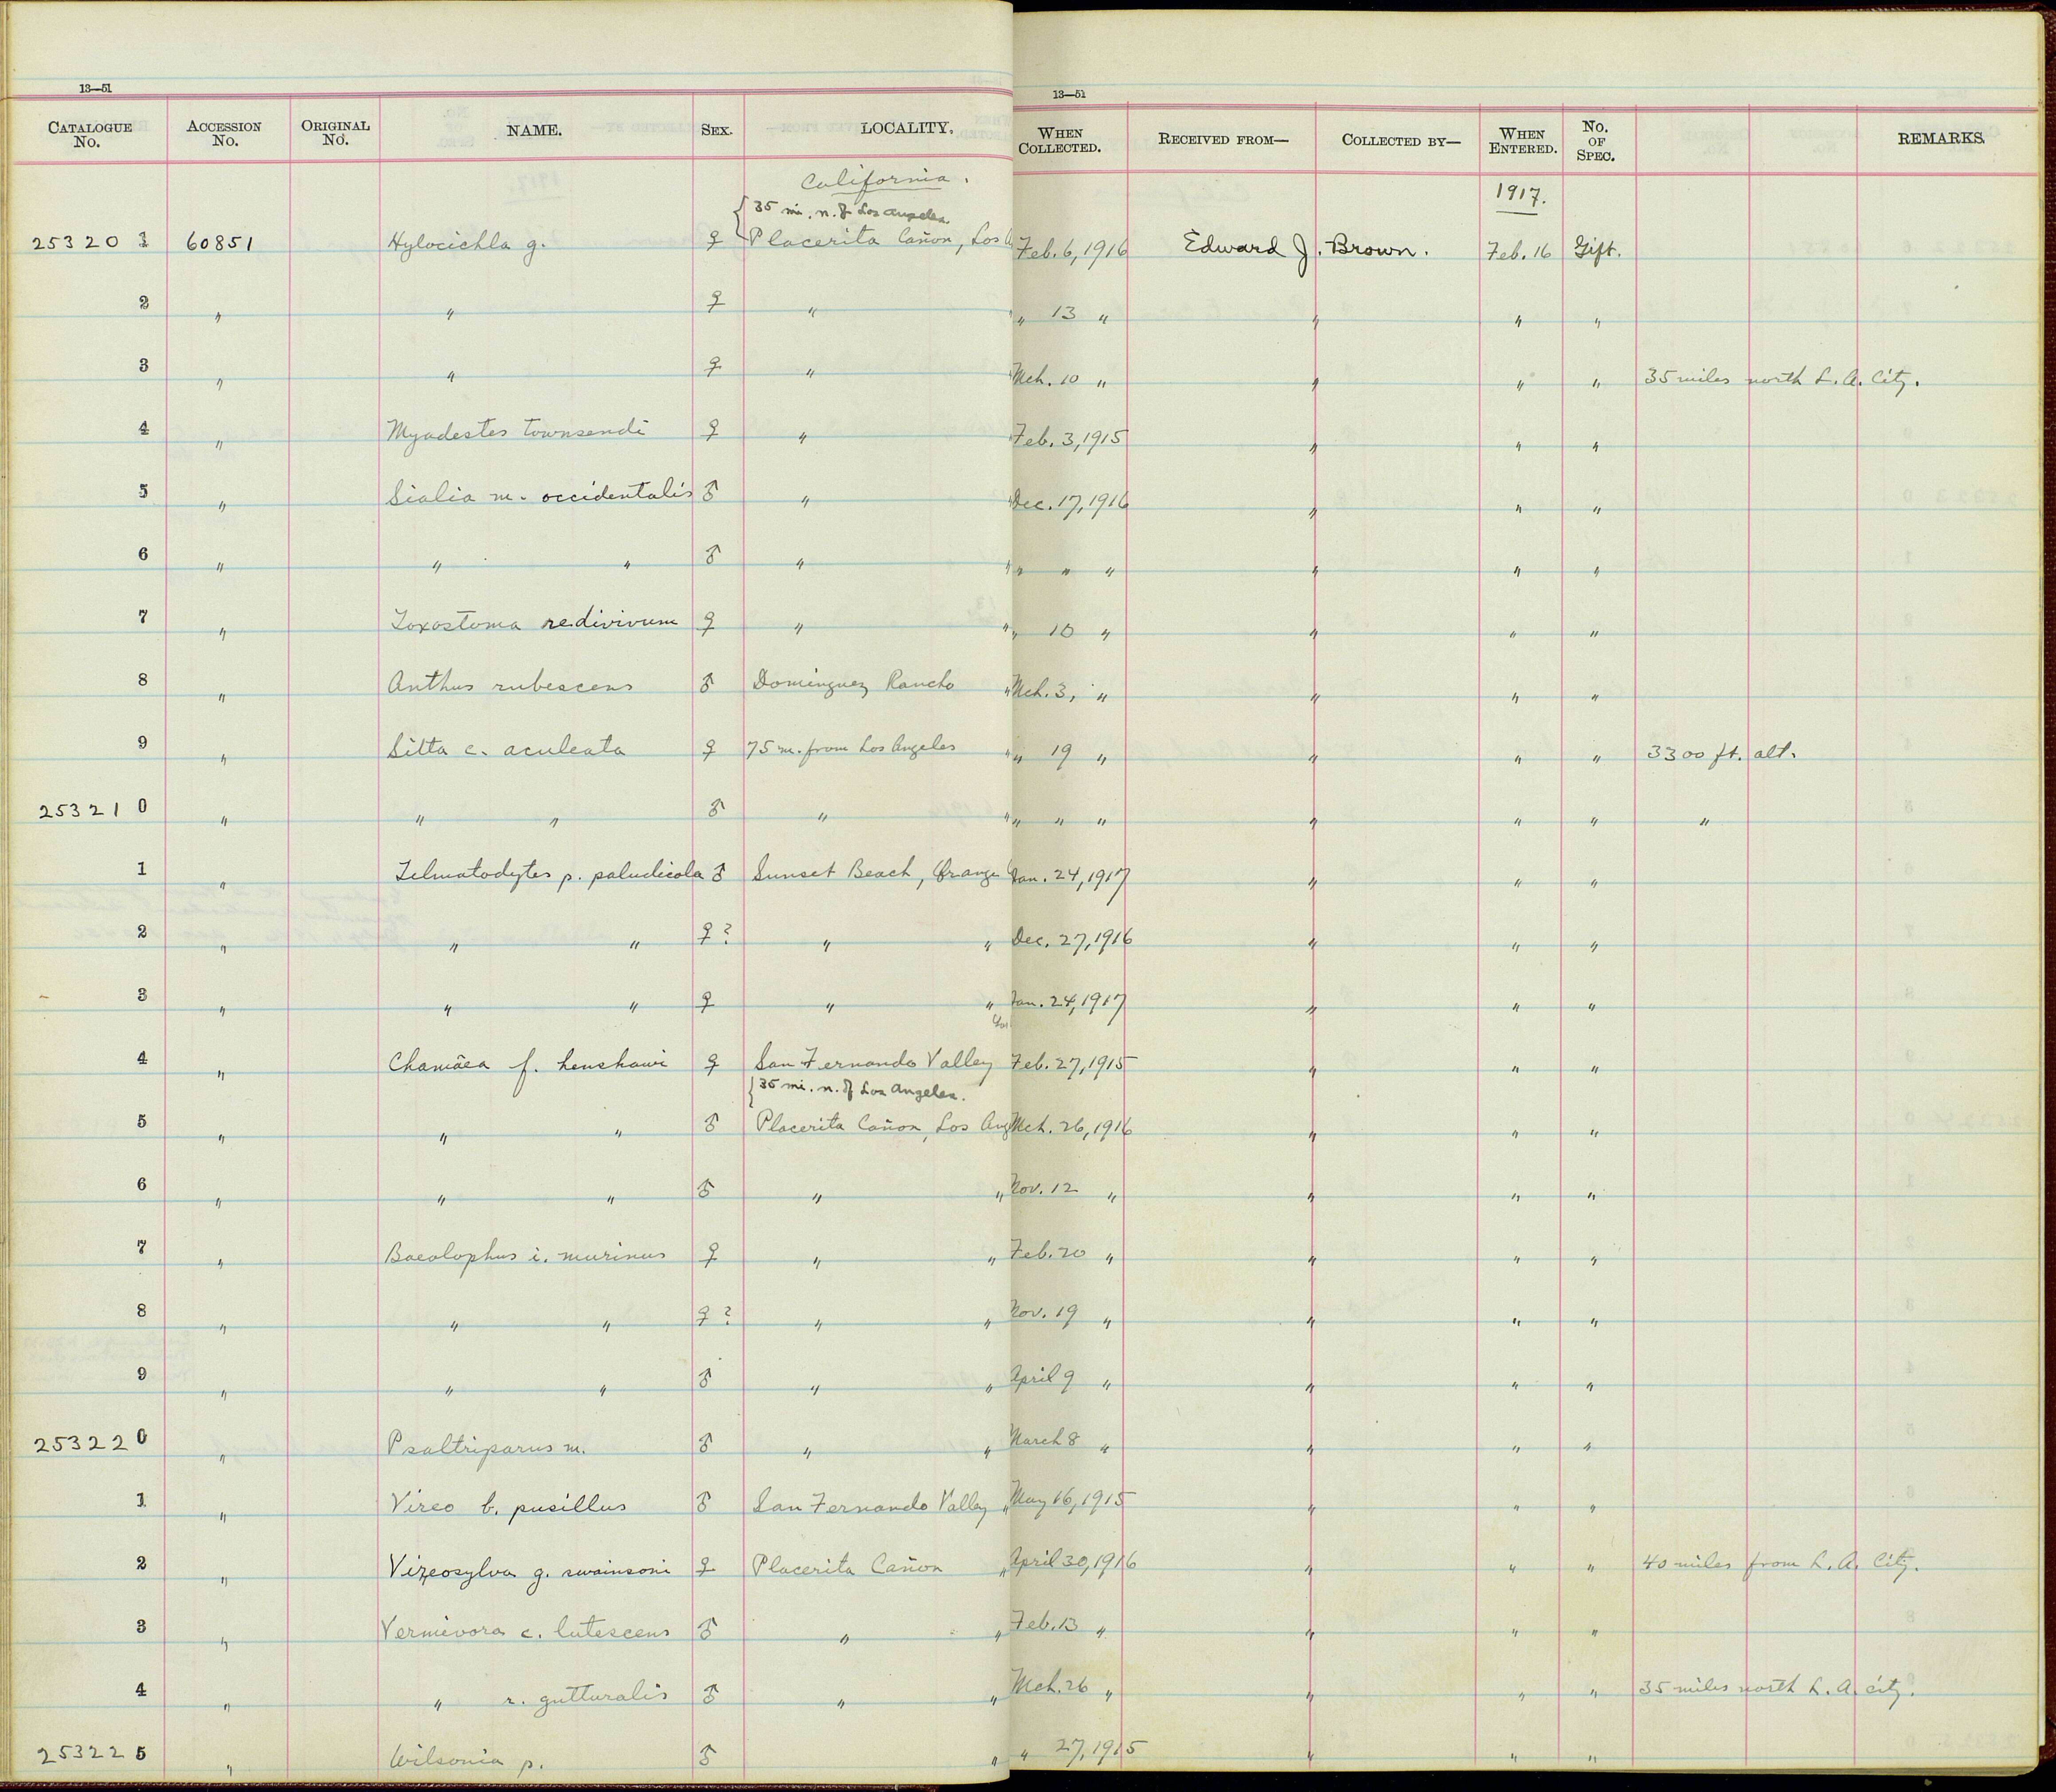 13—51
13—51
CATALOGUE No. ACCESSION No. ORIGINAL No. NAME. SEX. LOCALITY. WHEN COLLECTED. RECEIVED FROM— COLLECTED BY— WHEN ENTERED. No. OF SPEC. REMARKS.
California. 1917.
{35 mi. n. of Los Angeles.
253201 60851 Hylocichla g. ♀ Placerita Cañon, Los Feb. 6, 1916 Edward J. Brown. Feb. 16 Gift.
2 " " ♀ " " 13 " " " "
3 " " ♀ " Mch. 10 " " " " 35 miles north L. A. City.
4 " Myadestes townsendi ♀ " Feb. 3, 1915 " " "
5 " Sialia m. occidentalis ♂ " Dec. 17, 1916 " " "
6 " " " ♂ " " " " " " " "
7 " Toxostoma redivivum ♀ " " " 10 " " " "
8 " Anthus rubescens ♂ Dominguez Rancho " Mch. 3, " " " "
9 " Sitta c. aculeata ♀ 75 m. from Los Angeles " " 19 " " " " 3300 ft. alt.
253210 " " " ♂ " " " " " " " " "
1 " Telmatodytes p. paludicola ♂ Sunset Beach, Orange Jan. 24, 1917 " " "
2 " " " ♀ ? " " Dec. 27, 1916 " " "
3 " " " ♀ " " Jan. 24, 1917 " " "
4 " Chamæa f. henshawi ♀ San Fernando Valley Feb. 27, 1915 " " "
{35 mi. n. of Los Angeles.
5 " " " ♂ Placerita Cañon, Los Ang Mch. 26, 1916 " " "
6 " " " ♂ " " Nov. 12 " " " "
7 " Baeolophus i. murinus ♀ " " Feb. 20 " " " "
8 " " " ♀ ? " " Nov. 19 " " " "
9 " " " ♂ " " April 9 " " " "
253220 " Psaltriparus m. ♂ " " March 8 " " " "
1 " Vireo b. pusillus ♂ San Fernando Valley " May 16, 1915 " " "
2 " Vireosylva g. swainsoni ♀ Placerita Cañon " April 30, 1916 " " " 40 miles from L. A. City.
3 " Vermivora c. lutescens ♂ " " Feb. 13 " " " "
4 " " r. gutturalis ♂ " " Mch. 26 " " " " 35 miles north L. A. city.
253225 " Wilsonia p. ♂ " " 27, 1915 " " "